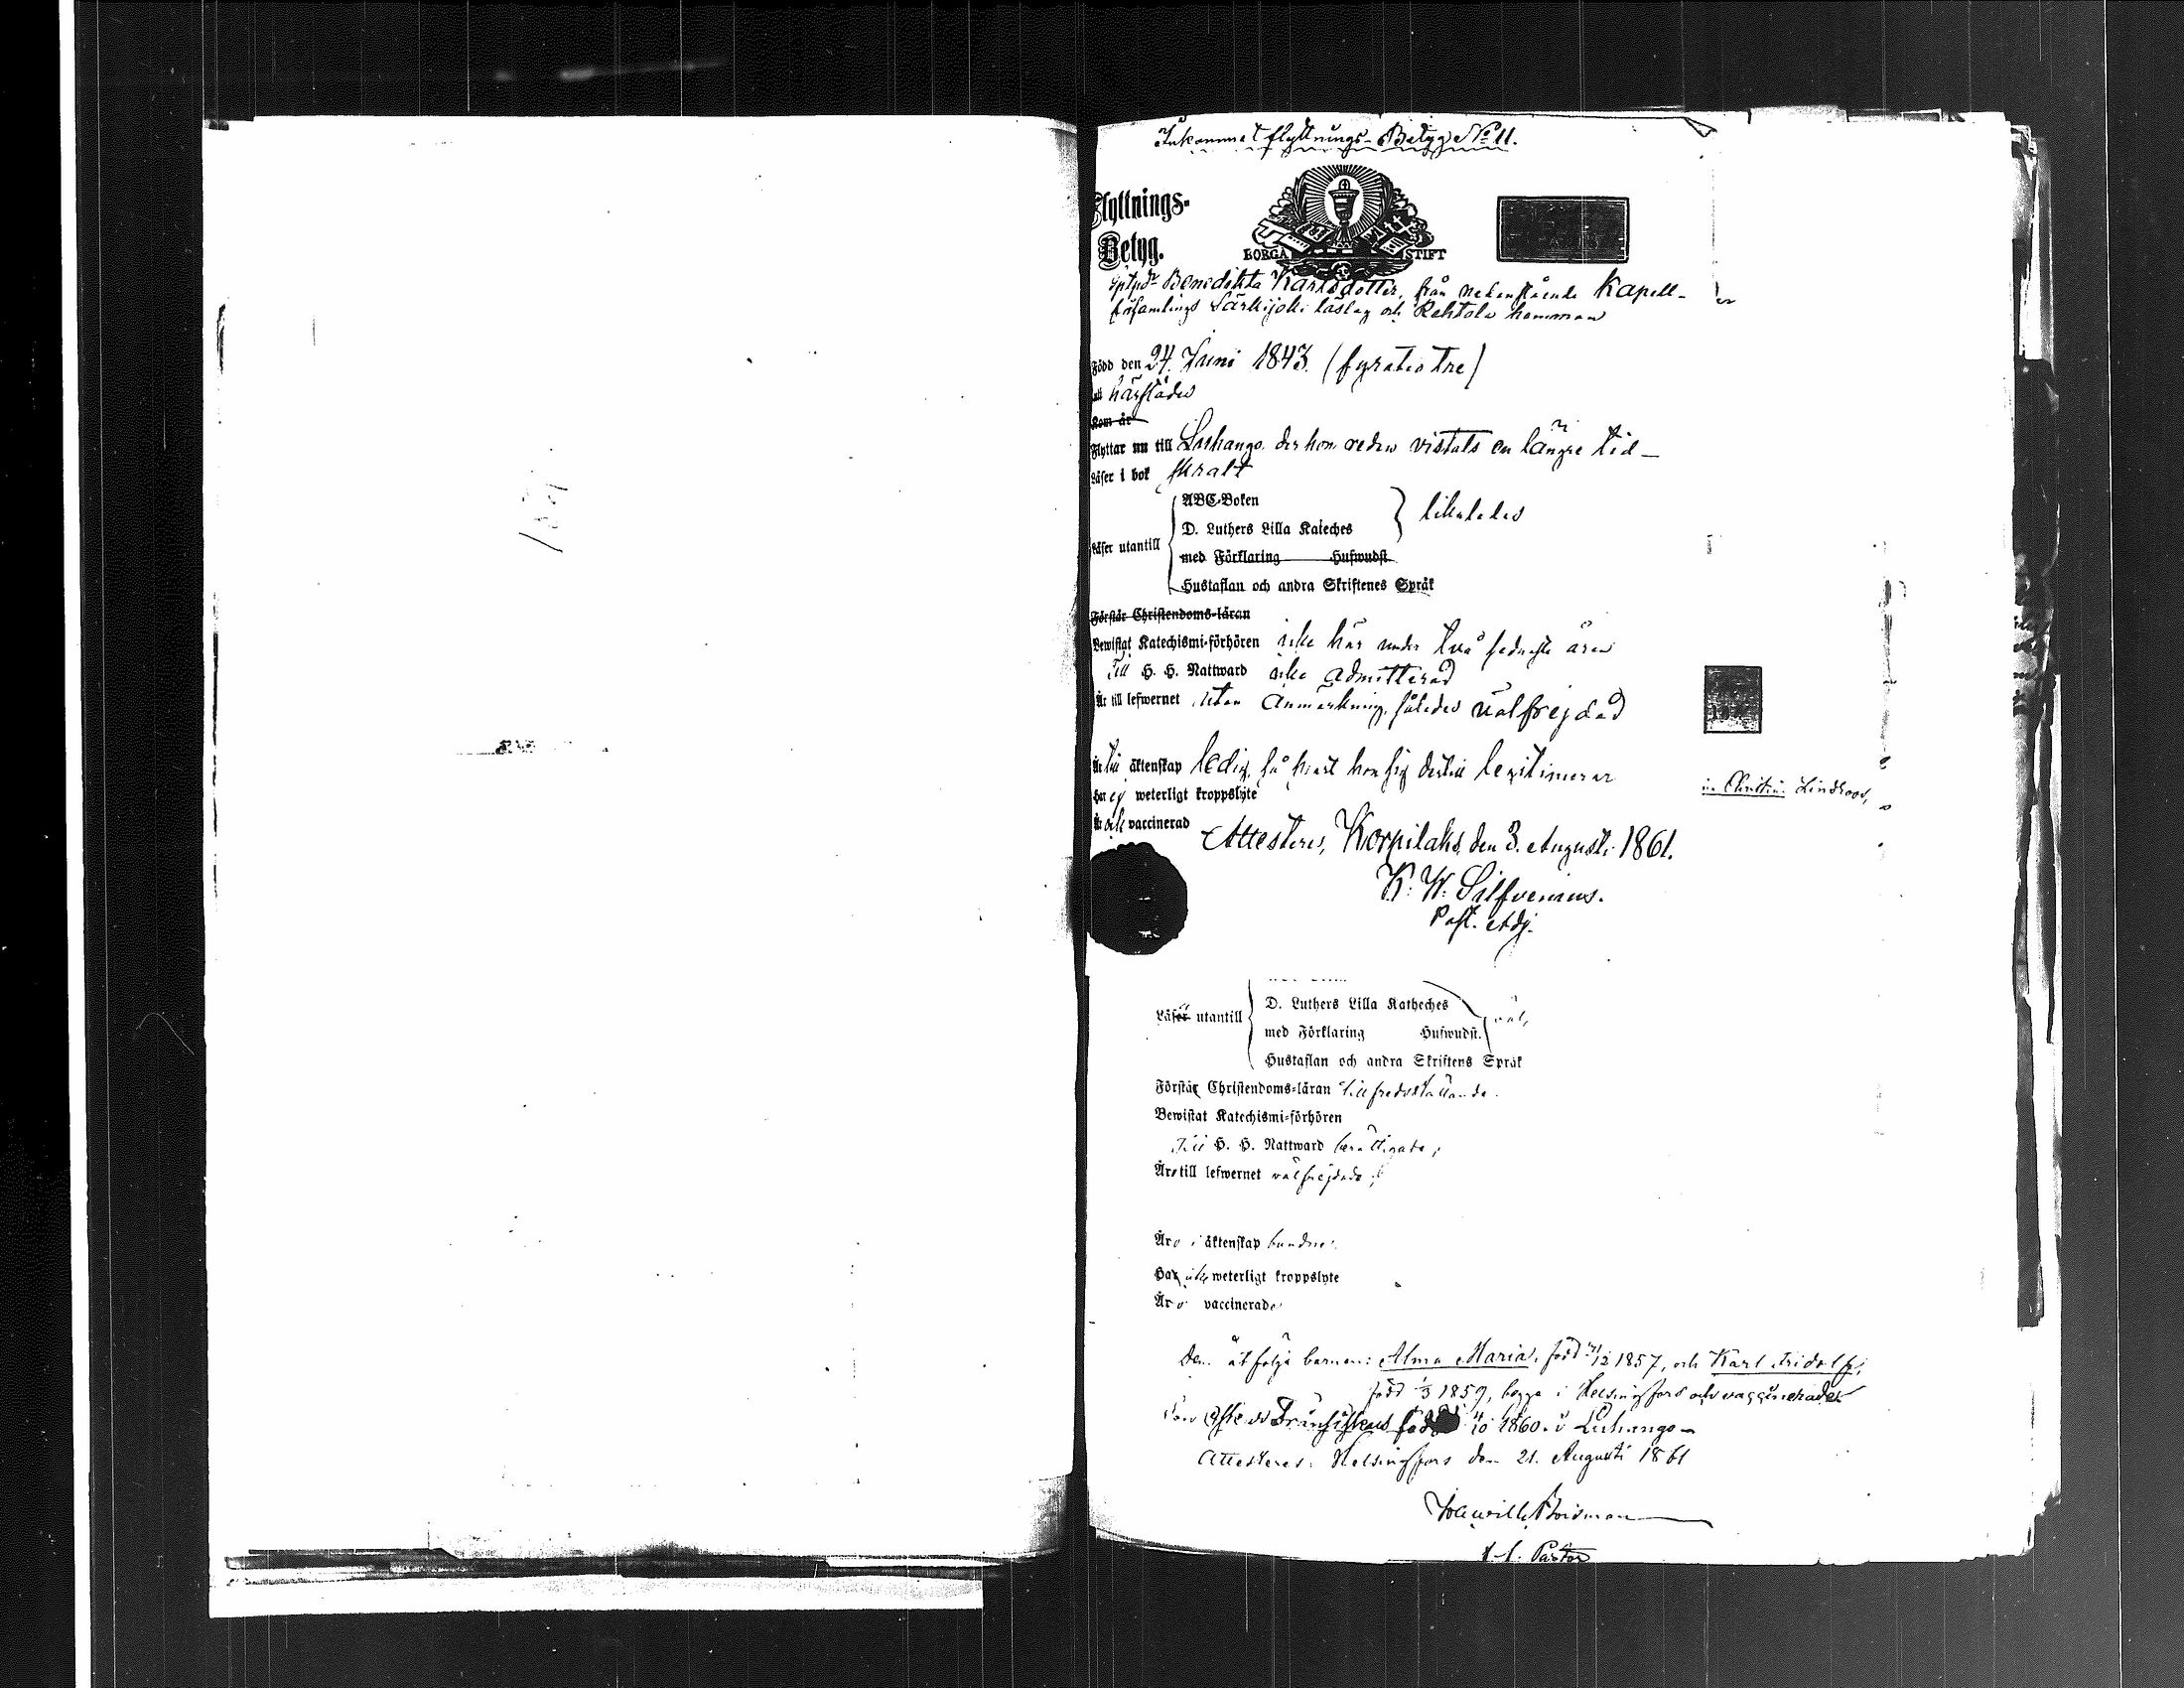 Inkommet flyttnings-Betyg No 11.
Flyttnings-
Betyg.
BORGÅ STIFT
Benedikta Karlsdotter, från nedanstående Kapell-
församlings Särkijoki läslag och Rahtola hemman
Född den 24. Juni 1843. (fyratio tre)
härstädes
Kom år
Flyttar nu till Luhango. der hon redan vistats en längre tid _
Läser i bok skralt
Läser utantill
ABC-Boken
D. Luthers Lilla Kateches
med Förklaring Hufwudst.
Hustaflan och andra Skriftenes Språk
likaledes
Förstår Christendoms-läran
Bewistat Katechismi-förhören icke här under två sednaste åren
Till H. H. Nattward icke admitterad
Är till lefwernet utan anmärkning, således välfrejdad
Är till äktenskap ledig, så hon sig dertill legitimerar
Har ej weterligt kroppslyte
in Christin. Lindroos,
Är och vaccinerad
Attesteras, Korpilaks, den 3. Augusti 1861.
K. W. Silfvenius.
Past. Adj.
Läser utantill
D. Luthers Lilla Katheches
med Förklaring Hufwudst.
Hustaflan och andra Skriftens Språk
väl,
Förstår Christendoms-läran tillfredsställande.
Bewistat Katechismi-förhören
Till H. H. Nattward berättigade,
Äro till lefwernet välfrejdade;
Äro i äktenskap bundne.
Har icke weterligt kroppslyte
Äro vaccinerade
Dem åtfölja barnen: Alma Maria, född 12 1857, och Karl Fridolf,
född 1/3 1859, begge i Helsingfors och vaccinerade
född 10 1860. i Luhango _
Attesteras. Helsingfors den 21. Augusti 1861
Pastor